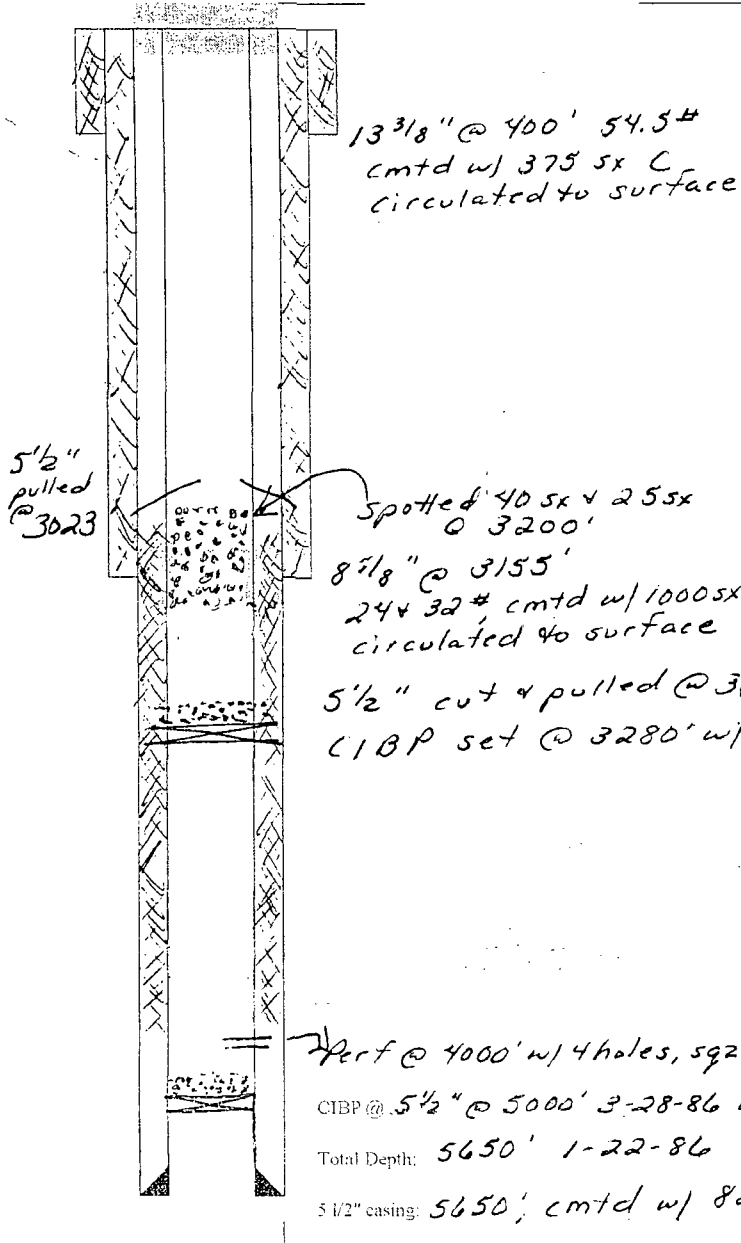 13 3/8" @ 400' 54.5#
cmtd w/ 375 sx C
circulated to surface
5 1/2"
pulled
@ 3023
spotted 40 sx & 25 sx
@ 3200'
8 5/8" @ 3155'
24 & 32#, cmtd w/ 1000 sx
circulated to surface
5 1/2" cut & pulled @
CIBP set @ 3280' w/
Perf @ 4000' w/ 4 holes, sqz
CIBP @ 5 1/2" @ 5000' 3-28-86
Total Depth: 5650' 1-22-86
5 1/2" casing: 5650', cmtd w/